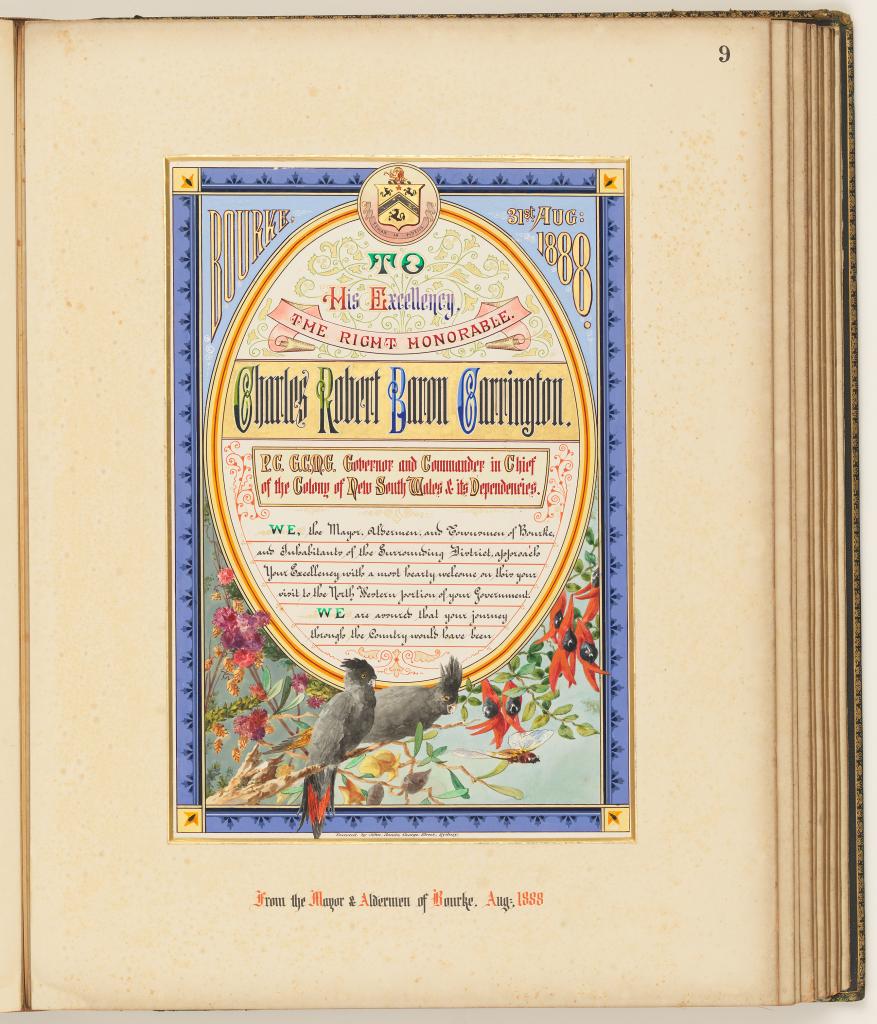 9
BOURKE.
31st AUG:
1888.
TO
His Excellency,
THE RIGHT HONORABLE.
Charles Robert Baron Carrington.
P.C. G.C.M.G. Governor and Commander in Chief
of the Colony of New South Wales & its Dependencies.
WE, the Mayor, Aldermen, and Townsmen of Bourke,
and Inhabitants of the Surrounding District, approach
Your Excellency with a most hearty welcome on this your
visit to the North Western portion of your Government.
WE are assured that your journey
through the Country would have been
by John Sands, George Street, Sydney.
From the Mayor & Aldermen of Bourke. Aug: 1888